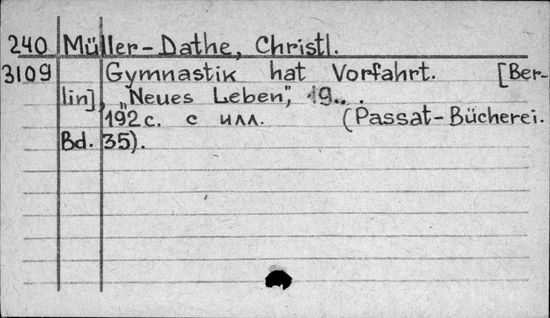 240 Müller-Dathe, Christl.
3109 Gymnastik hat Vorfahrt. [Ber-
lin], „Neues Leben", 19.. .
192 с. с илл. (Passat-Bücherei.
Bd. 35).